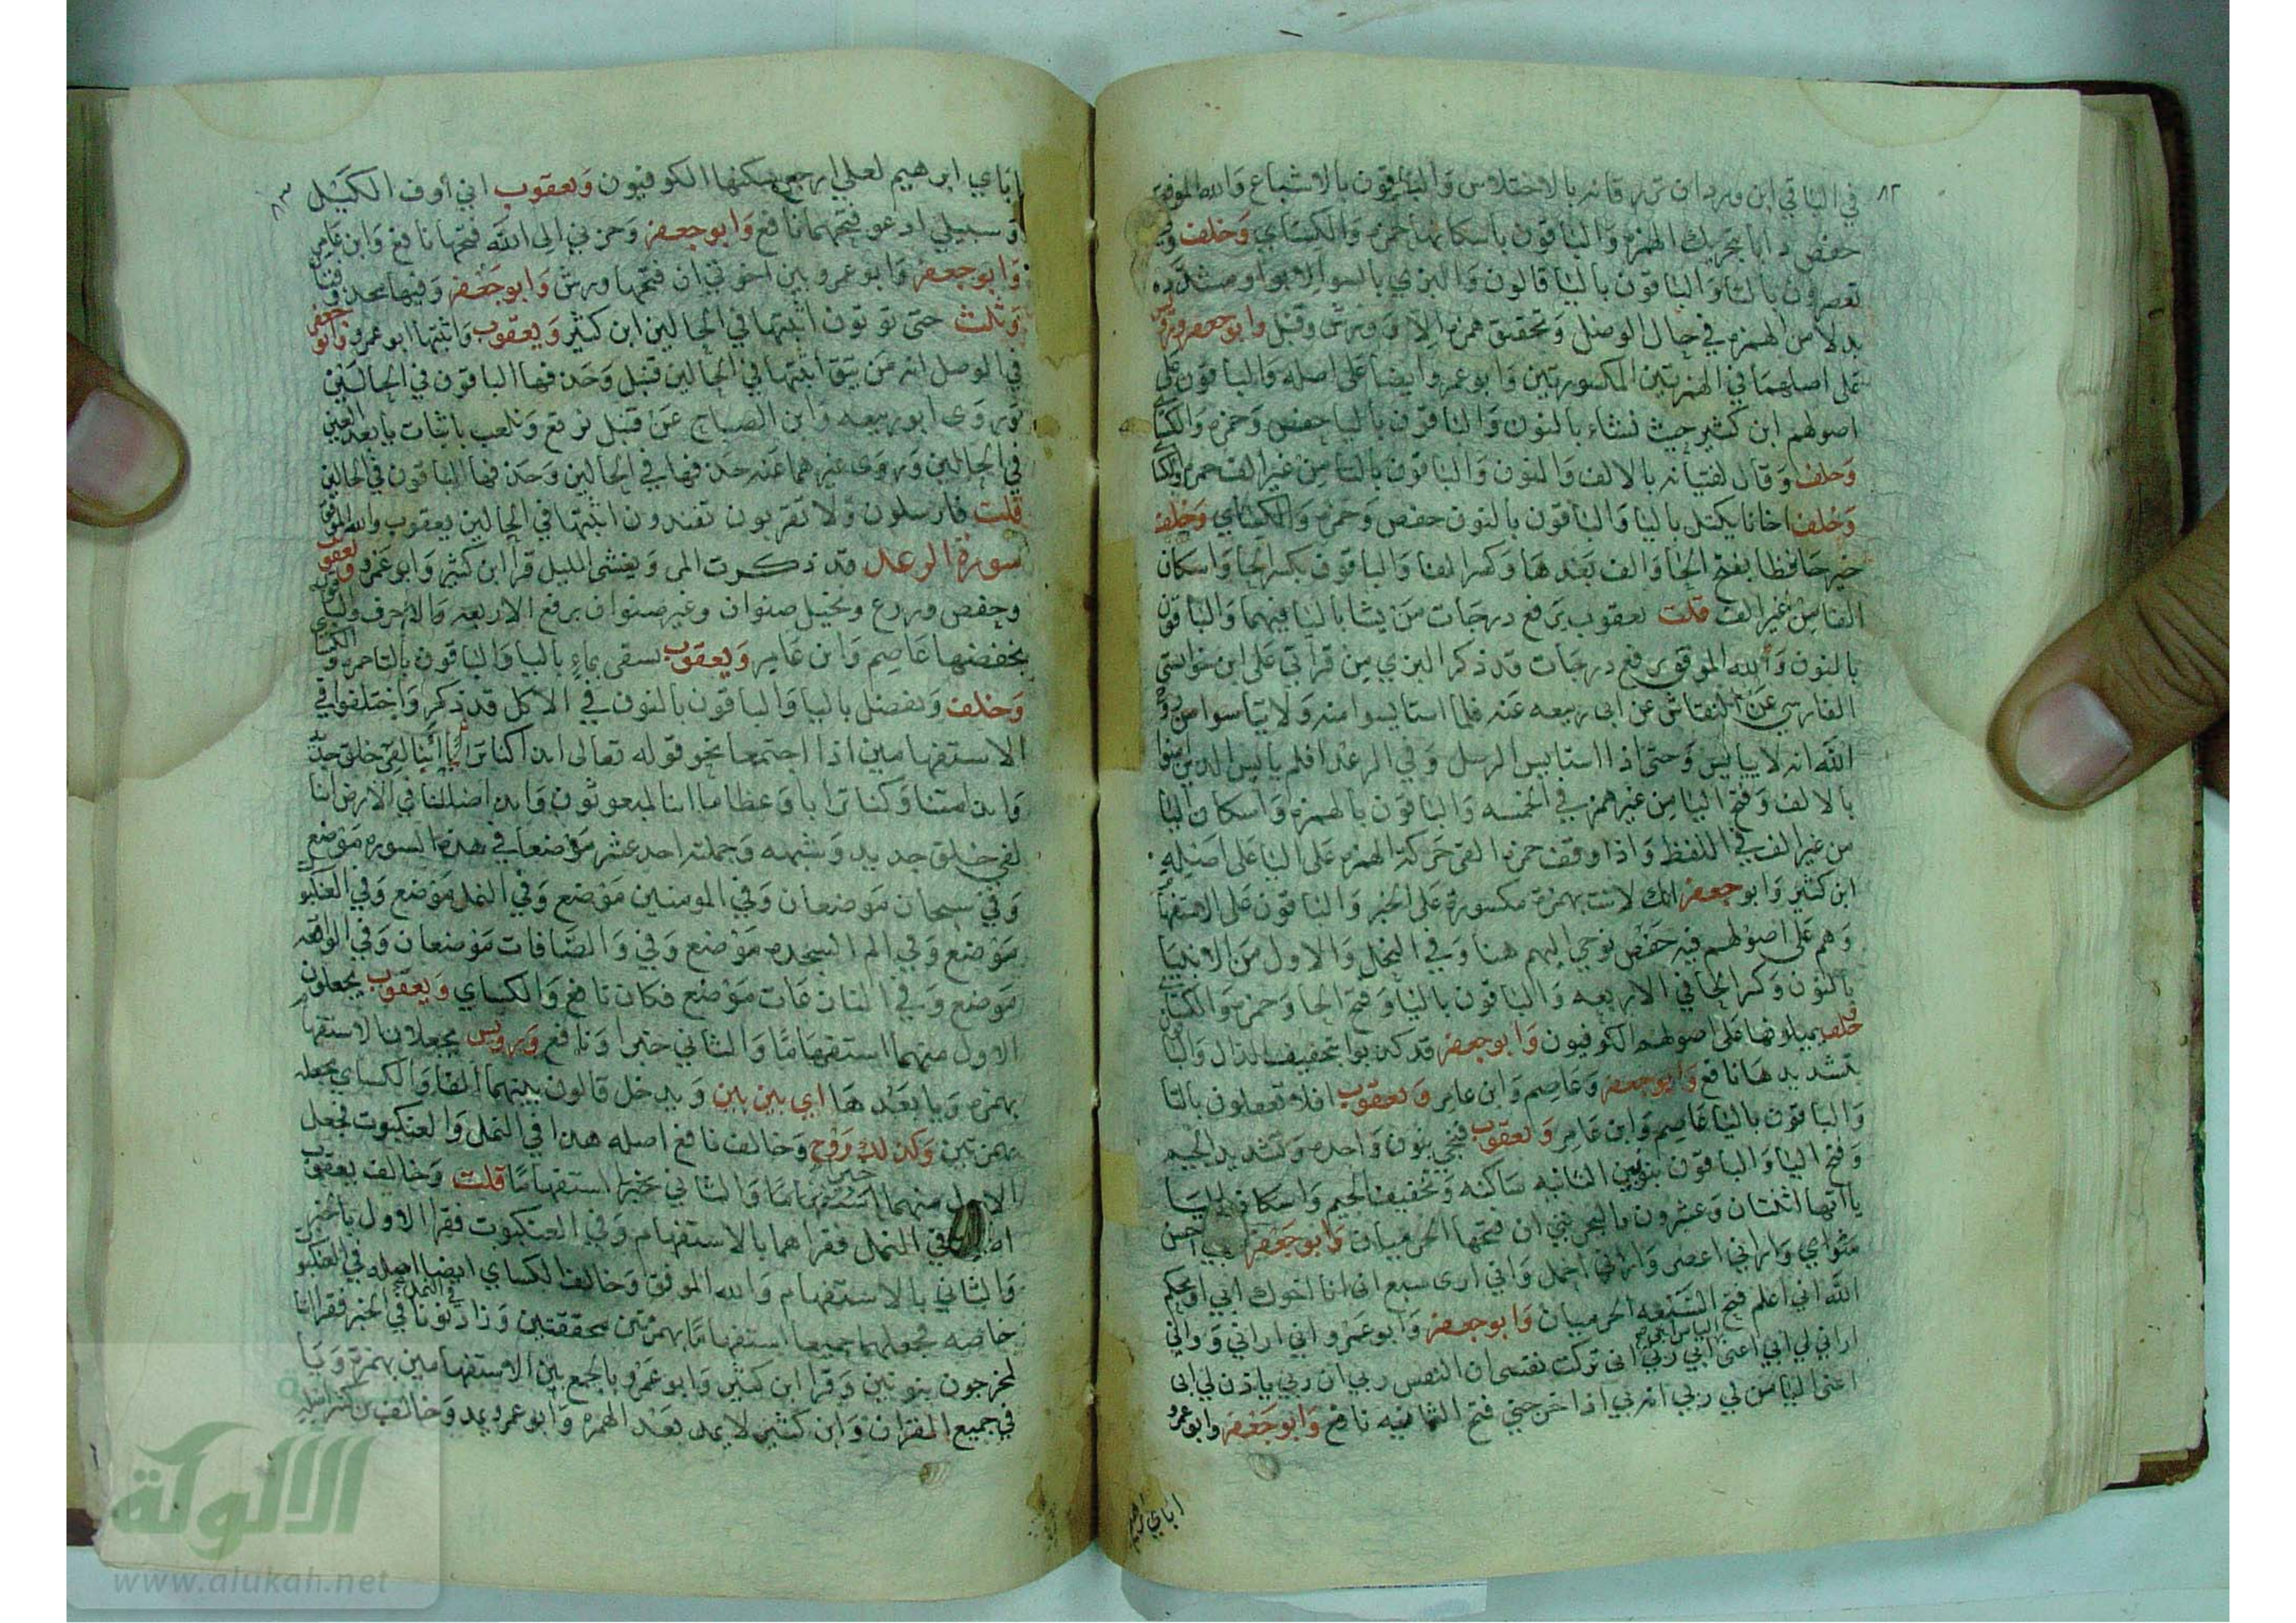 ٨٢
في الباقي ابن وردان ترزقانه بالاختلاس والباقون بالاشباع والله الموفق
حفص دابا بتحريك الهمزه والباقون باسكانها حمزه والكساي وخلف وفيه
تعصرون بالتا والباقون باليا قالون والبزي بالسو الا بواو مشدده
بدلا من الهمزه في حال الوصل وتحقيق همزه الا وورش وقنبل وابو جعفر ورويس
على اصلهما في الهمزتين المكسورتين وابو عمرو ايضا على اصله والباقون على
اصولهم ابن كثير حيث نشاء بالنون والباقون باليا حفص وحمزه والكسا
وخلف وقال لفتيانه بالالف والنون والباقون بالتا من غير الف حمزه والكسا
وخلف اخانا يكتل باليا والباقون بالنون حفص وحمزه والكساي وخلف
خير حافظا بفتح الحا والف بعدها وكسر الفا والباقون بكسر الحا واسكان
الفا من غير الف قلت يعقوب يرفع درجات من يشا باليا فيهما والباقون
بالنون والله الموفق نرفع درجات قد ذكر البزي من قراتي على ابن خواستي
الفارسي عن النقاش عن ابي ربيعه عنه فلما استايسوا منه ولا تياسوا من روح
الله انه لا يايس وحتى اذا استايس الرسل وفي الرعد افلم يايس الذين امنوا
بالالف وفتح اليا من غير همز في الخمسه والباقون بالهمزه واسكان اليا
من غير الف في اللفظ واذا وقف حمزه القى حركه الهمزه على اليا على اصله
ابن كثير وابو جعفر انك لانت بهمزة مكسورة على الخبر والباقون على الاستفها
وهم على اصولهم فيه حفص نوحي اليهم هنا وفي النحل والاول من الانبيا
بالنون وكسر الحا في الاربعه والباقون باليا وفتح الحا وحمزه والكساي
وخلف يميلونها على اصولهم الكوفيون وابو جعفر قد كذبوا بتخفيف الذال والبا
بتشديدها نافع وابو جعفر وعاصم وابن عامر ويعقوب افلا تعقلون بالتا
والباقون باليا عاصم وابن عامر ويعقوب فنجي بنون واحده وتشديد الجيم
وفتح اليا والباقون بنونين الثانيه ساكنه وتخفيف الجيم واسكان اليا
ياآتها اثنتان وعشرون ياليحزنني ان فتحها الحرميان وابو جعفر ربي احسن
مثواي واراني اعصر واراني احمل واني ارى سبع اني انا اخوك ابي او يحكم
الله اني اعلم فتح السبعه الحرميان وابو جعفر وابو عمرو اني اراني واني
اراني لي ابي اعني ابي ربي اني تركت نفسي ان النفس ربي ان ربي ياذن لي ابي
اعني اليا من لي ربي انه بي اذا اخرجني فتح الثمانيه نافع وابو جعفر وابو عمرو
اباي ابرهيم
٨٣
اباي ابرهيم لعلي ارجع سكنها الكوفيون ويعقوب اني اوف الكيل
وسبيلي ادعو فتحهما نافع وابو جعفر وحزني الى الله فتحها نافع وابن عامر
وابو جعفر وابو عمرو بين اخوتي ان فتحها ورش وابو جعفر وفيها محذوفتا
وثلث حتى توتون اثبتها في الحالين ابن كثير ويعقوب واثبتها ابو عمرو وابو جعفر
في الوصل انه من يتق اثبتها في الحالين قنبل وحذفها الباقون في الحالين
وروى ابو ربيعه وابن الصباح عن قنبل نرتع ونلعب باثبات يا بعد العين
في الحالين وروى غيرهما عنه حذفها في الحالين وحذفها الباقون في الحالين
قلت فارسلون ولا تقربون تفندون اثبتها في الحالين يعقوب والله الموفق
سورة الرعد قد ذكرت المر ويغشى الليل قرا ابن كثير وابو عمرو ويعقوب
وحفص وزرع ونخيل صنوان وغير صنوان برفع الاربعه الاحرف والباقون
بخفضها عاصم وابن عامر ويعقوب يسقى بماء باليا والباقون بالتا حمزه والكسا
وخلف ويفضل باليا والباقون بالنون في الاكل قد ذكر واختلفوا في
الاستفهامين اذا اجتمعا نحو قوله تعالى ائذا كنا ترابا أئنا لفي خلق جديد
وائذا متنا وكنا ترابا وعظاما ائنا لمبعوثون وائذا ضللنا في الارض ائنا
لفي خلق جديد وشبهه وجملته احد عشر موضعا في هذه السوره موضع
وفي سبحان موضعان وفي المومنين موضع وفي النمل موضع وفي العنكبوت
موضع وفي الم السجده موضع وفي والصافات موضعان وفي الواقعه
موضع وفي النازعات موضع فكان نافع والكساي ويعقوب يجعلون
الاول منهما استفهاما والثاني خبرا ونافع ورويس يجعلان الاستفها
بهمزه ويا بعدها اي بين بين ويدخل قالون بينهما الفا والكساي يجعله
بهمزتين وكذلك روح وخالف نافع اصله هذا في النمل والعنكبوت فجعل
الاول منهما خبرا والثاني استفهاما قلت وخالف يعقوب
اصله في النمل فقراهما بالاستفهام وفي العنكبوت فقرا الاول بالخبر
والثاني بالاستفهام والله الموفق وخالف الكساي ايضا اصله في العنكبوت
خاصه فجعلهما جميعا استفهاما بهمزتين محققتين وزاد نونا في النمل في الخبر فقرا اننا
لمخرجون بنونين وقرا ابن كثير وابو عمرو بالجمع بين الاستفهامين بهمزة ويا
في جميع القران وابن كثير لا يمد بعد الهمزه وابو عمرو يمد وخالف ابن كثير اصله
الألوكة
www.alukah.net